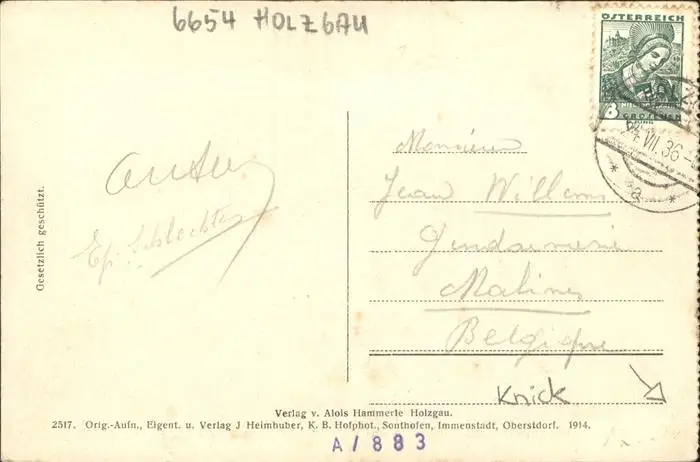 6654 HOLZGAU
ÖSTERREICH
8
GROSCHEN
VII. 36
* a *
Gesetzlich geschützt.
Monsieur
Jean Willems
Gendarmerie
Malines
Belgique
Knick
Verlag v. Alois Hammerle Holzgau.
2517. Orig.-Aufn., Eigent. u. Verlag J Heimhuber, K. B. Hofphot., Sonthofen, Immenstadt, Oberstdorf. 1914.
A/883